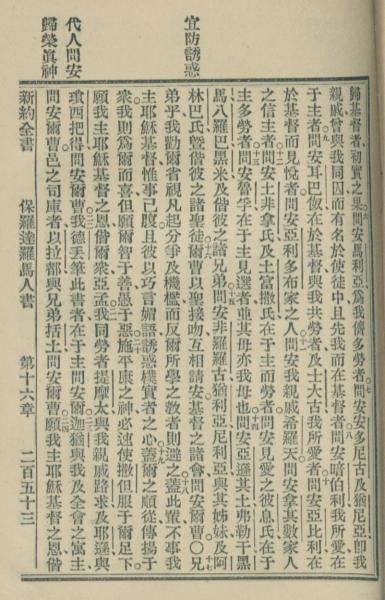 宜防誘惑
代人問安
歸榮眞神
歸基督者初實之果問安馬利亞爲我儕多勞者問安安多尼古及猶尼亞卽我
親戚曾與我同囚而有名於使徒中且先我而在基督者問安暗伯利我所愛在
于主者問安耳巴伽在於基督與我共勞者及士大古我所愛者問安亞比利在
於基督而見悅者問安亞利多布家之人問安我親戚希羅天問安拿其數家人
之信主者問安土非拿氏及土富撒氏在于主而勞者問安見愛之彼息氏在于
主多勞者問安魯孚在于主見選者並其母亦我母也問安亞遜其土弗勒干黑
馬八羅巴黑米及偕彼之諸兄弟問安非羅羅古猶利亞尼利亞與其姊妹及阿
林巴氏曁偕彼之諸聖徒爾曹以聖接吻互相請安基督之諸會問安爾曹〇兄
弟乎我勸爾省視凡起分爭及機檻而反爾所學之敎者則避之蓋此輩不事我
主耶穌基督惟事己腹且彼以巧言媚語誘惑樸實者之心蓋爾之順從傳揚于
衆我則爲爾而喜但願爾智于善愚于惡施平康之神必速使撒但服于爾足下
願我主耶穌基督之恩偕爾衆亞孟我同勞者提摩太與我親戚路求及耶遜與
瑣西把得問安爾曹我德丟筆此書者在于主問安爾迦猶與我及全會之寓主
問安爾曹邑之司庫者以拉都與兄弟括土問安爾曹願我主耶穌基督之恩偕
新約全書 保羅達羅馬人書 第十六章 二百五十三